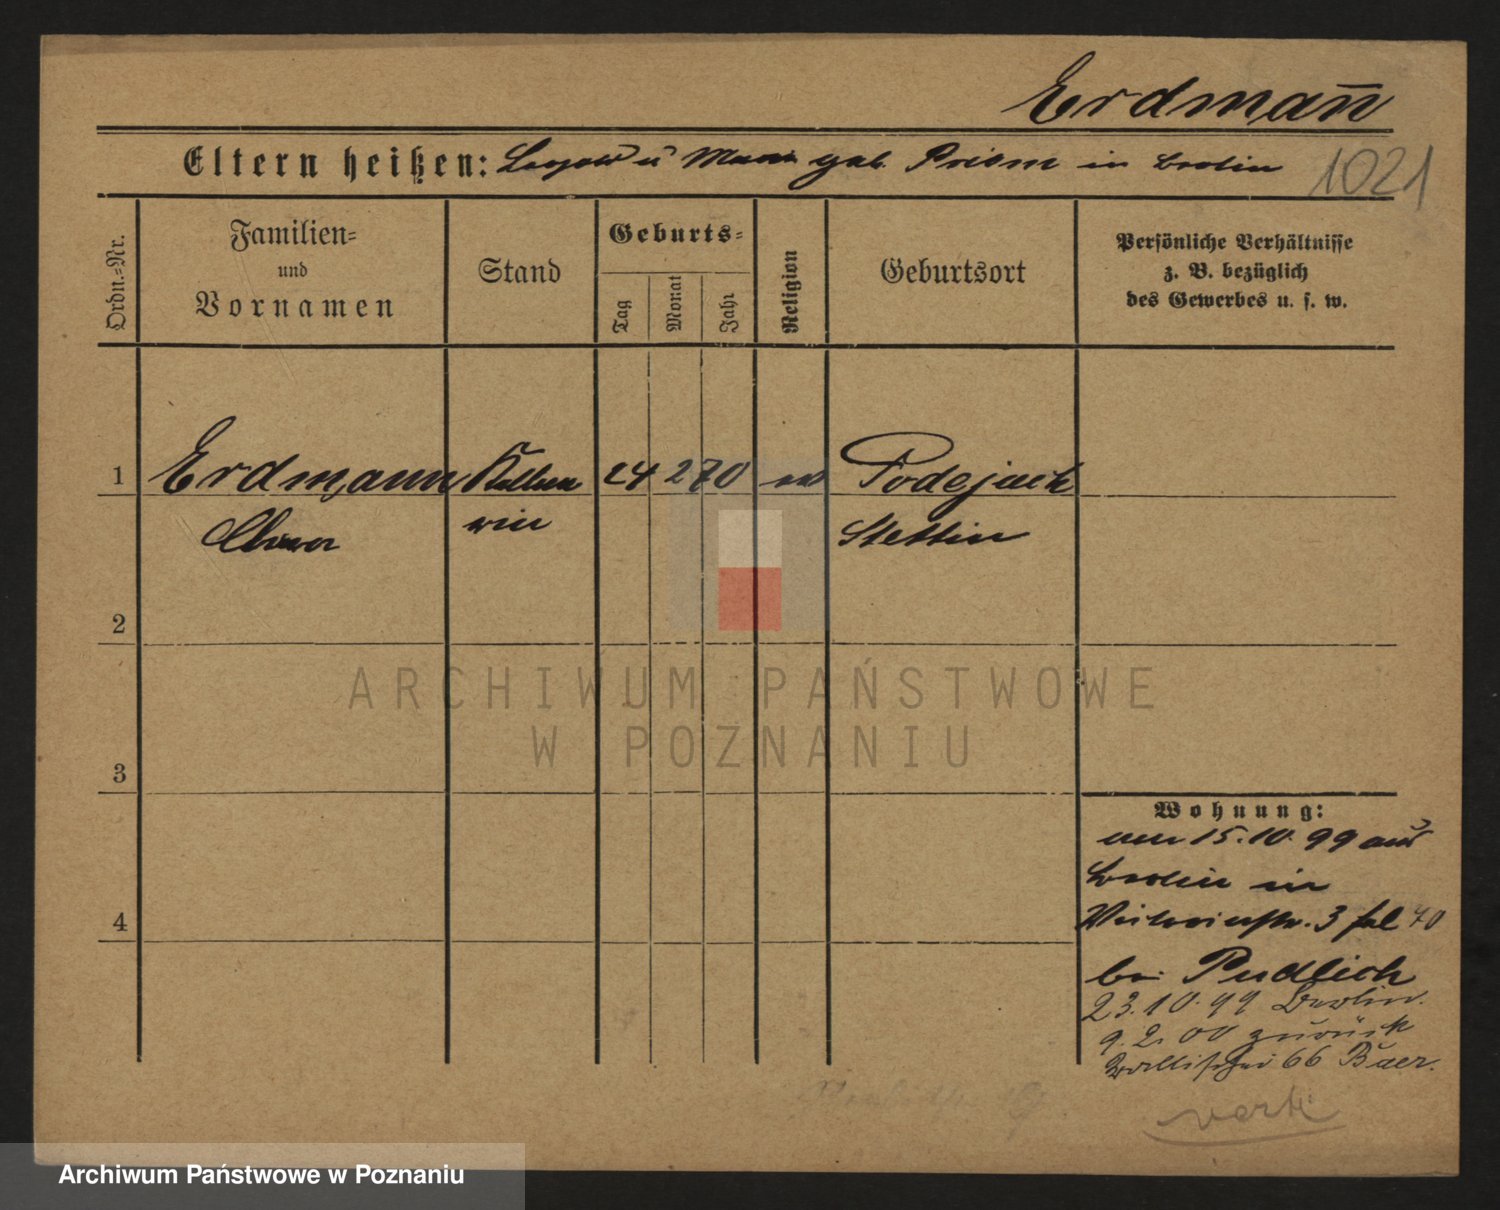 Erdmañ
Eltern heißen: u geb. Priem in Berlin
1021
Ordn.-Nr.
Familien-
und
Vornamen
Stand
Geburts-
Tag
Monat
Jahr
Religion
Geburtsort
Persönliche Verhältnisse
z. B. bezüglich
des Gewerbes u. s. w.
1
Erdmann Kelln 24 2 70 ev Podejuch
rin Stettin
2
3
4
Wohnung:
15.10.99 aus
Berlin in
3
bei Pudlich
23.10.99 Berlin.
9.2.00 zurück
Wallischei 66 Baer.
verh
ARCHIWUM PAŃSTWOWE
W POZNANIU
Archiwum Państwowe w Poznaniu